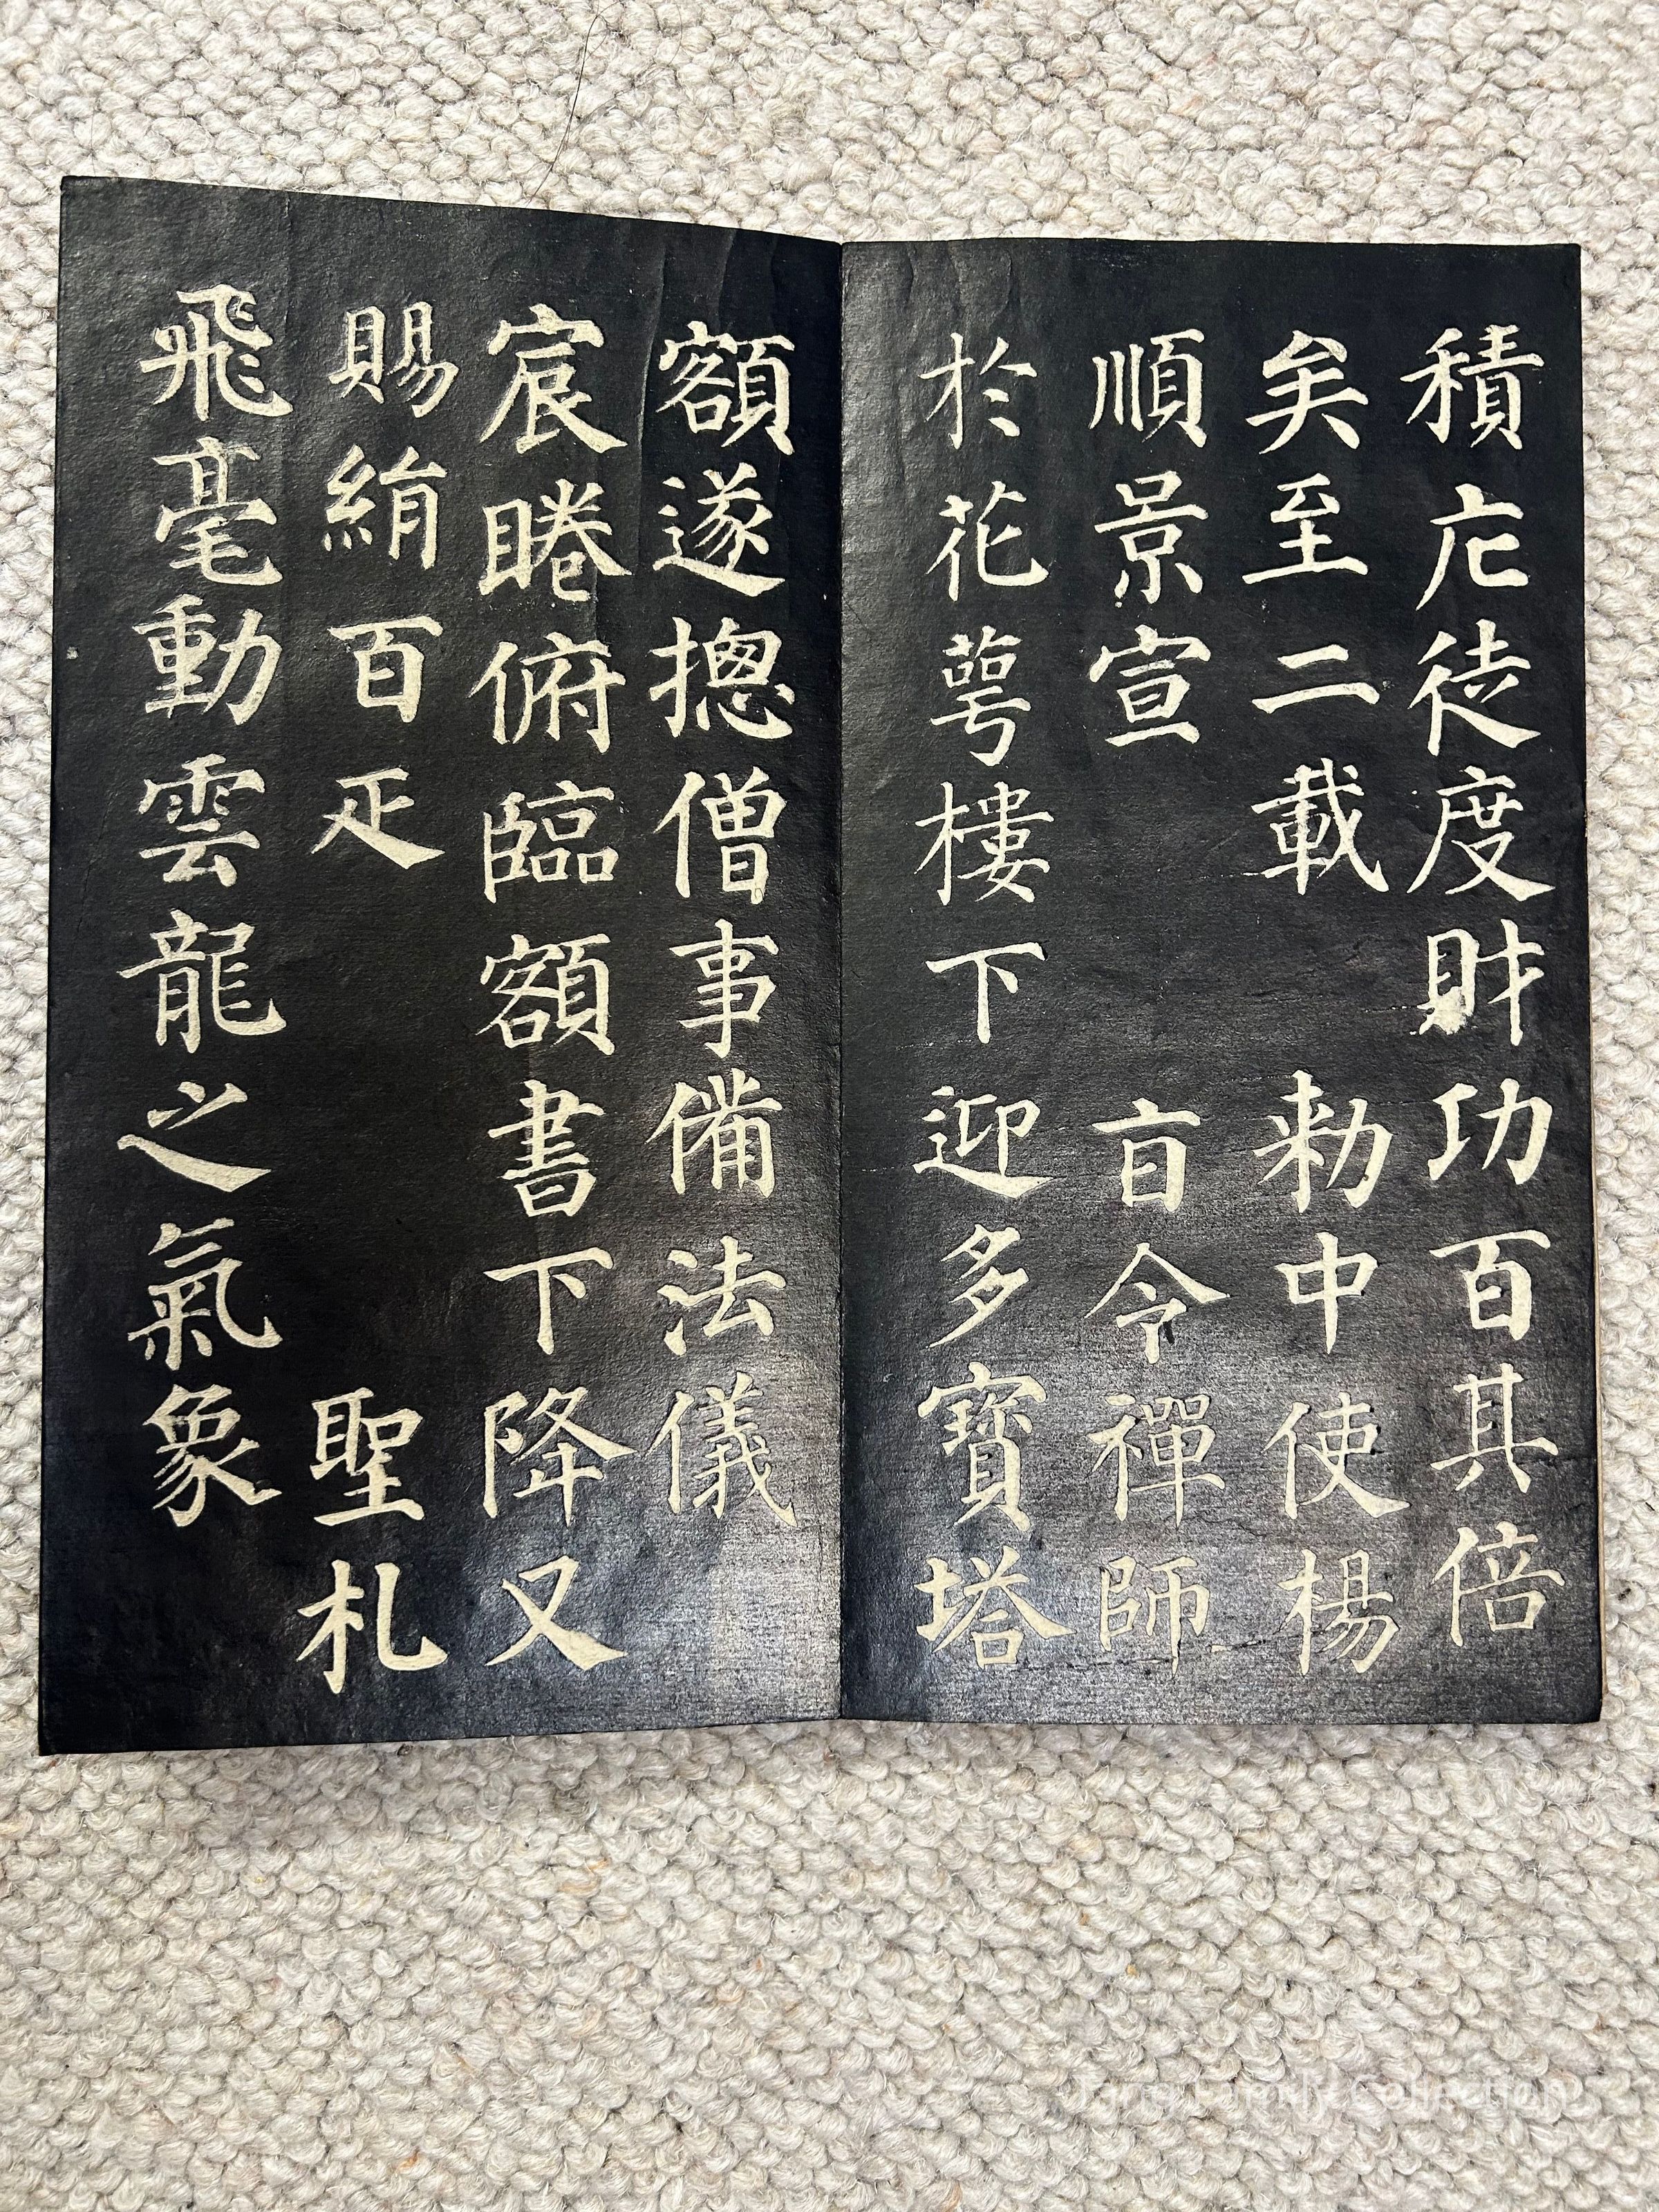 積庀徒度財功百其倍
矣至二載敕中使楊
順景宣旨令禪師
於花萼樓下迎多寶塔
額遂摠僧事備法儀
宸睠俯臨額書下降又
賜絹百疋聖札
飛毫動雲龍之氣象
Family Collection